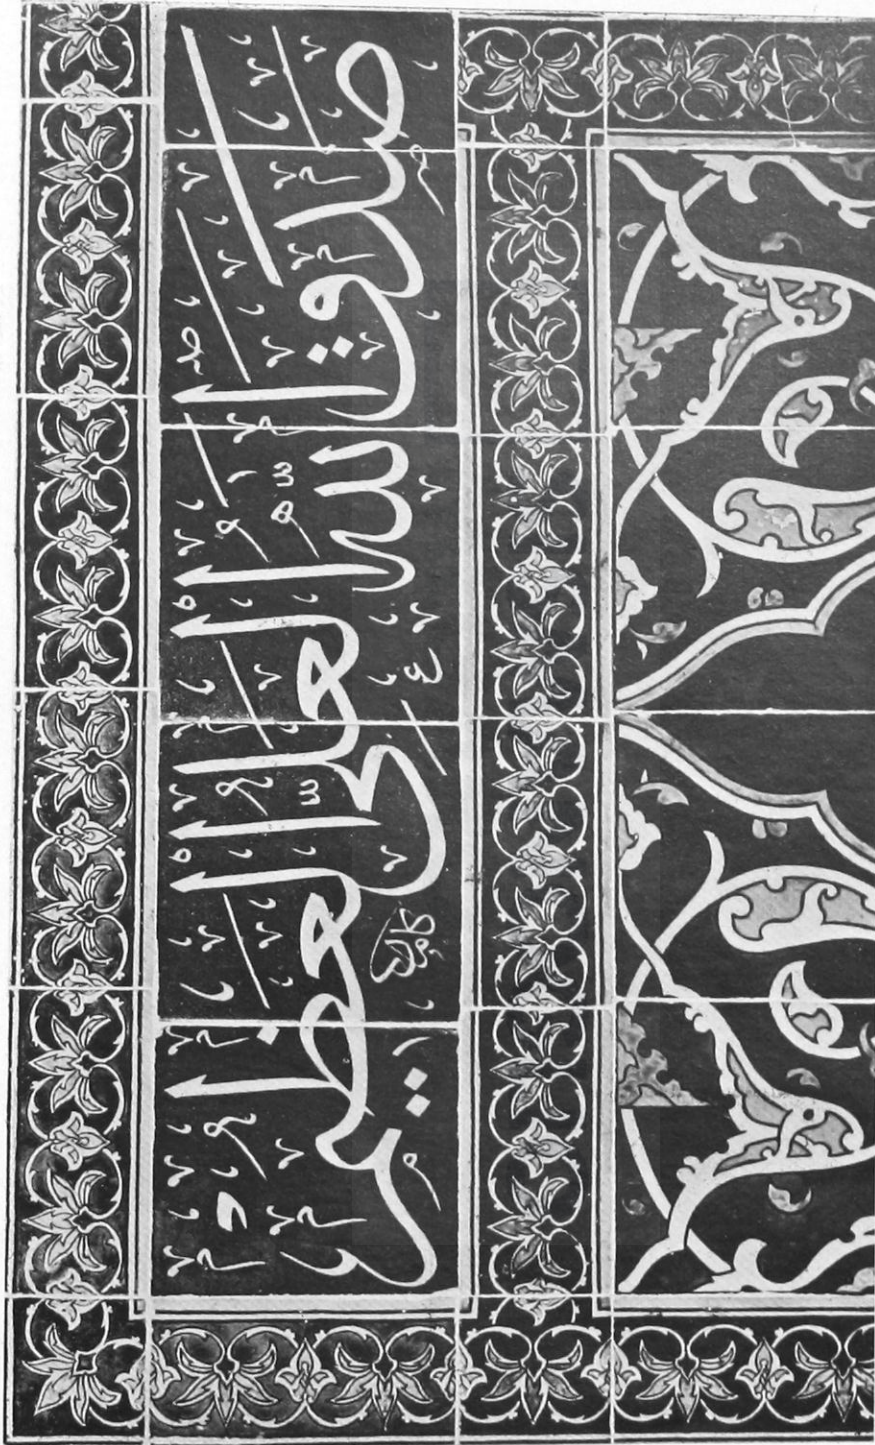 صدق الله العلى العظيم